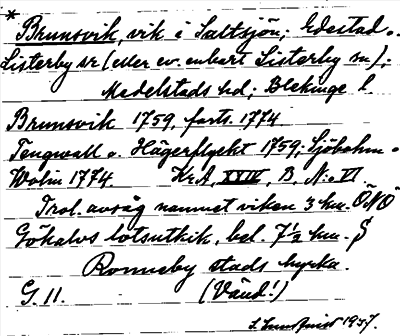 *
Brunsvik, vik i Saltsjön; Edestad o.
Listerby snr (eller ev. enbart Listerby sn.);
Medelstads hd; Blekinge l.
Brunsvik 1759, forts. 1774
Tengwall o. Hägerflycht 1759; Sjöbohm o
Wolin 1774. Kr.A, XXIV, B, N:o VI
Trol. avsåg namnet viken 3 km. ÖNÖ
Gökalvs lotsutkik, bel. 7½ km. S
Ronneby stads kyrka.
G. 11. (Vänd!)
1957.